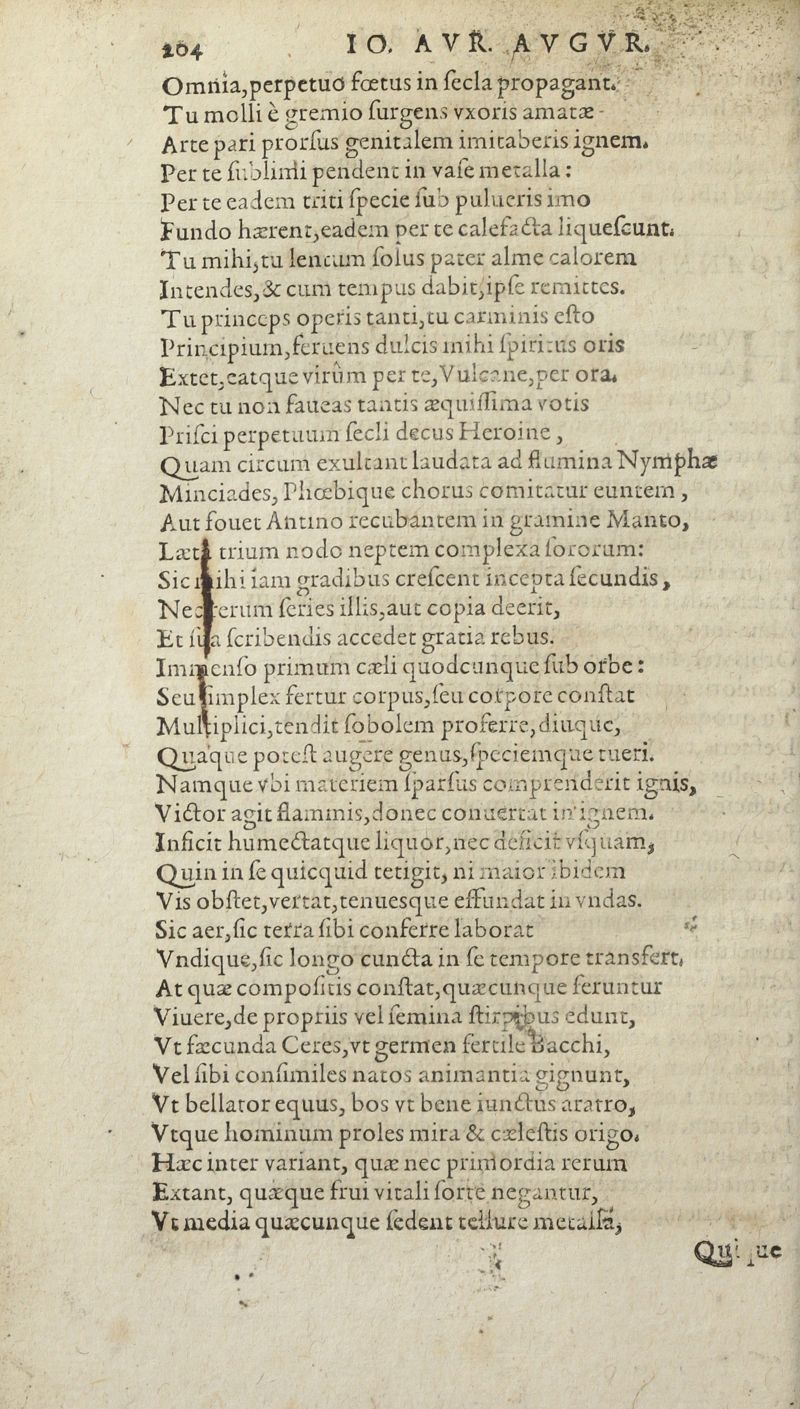 204 IO. AVR. AVGVR.
Omnia,perpetuó fœtus in ſecla propagant.
Tu molli è gremio ſurgens vxoris amatæ
Arte pari prorſus genitalem imitaberis ignem.
Per te ſublimi pendent in vaſe metalla :
Per te eadem triti ſpecie ſub pulueris imo
Fundo hærent,eadem per te calefacta liqueſcunt.
Tu mihi,tu lentum ſolus pater alme calorem
Intendes,& cum tempus dabit,ipſe remittes.
Tu princeps operis tanti,tu carminis eſto
Principium,feruens dulcis mihi ſpiritus oris
Extet,eatque virûm per te,Vulcane,per ora.
Nec tu non faueas tantis æquiſſima votis
Priſci perpetuum ſecli decus Heroine ,
Quam circum exultant laudata ad flumina Nymphæ
Minciades, Phœbique chorus comitatur euntem ,
Aut fouet Antino recubantem in gramine Manto,
Læta trium nodo neptem complexa ſororum:
Sic mihi iam gradibus creſcent incepta ſecundis ,
Nec rerum ſeries illis,aut copia deerit,
Et ſua ſcribendis accedet gratia rebus.
Immenſo primum cæli quodcunque ſub orbe :
Seu ſimplex fertur corpus,ſeu corpore conſtat
Multiplici,tendit ſobolem proferre,diuque,
Quaque poteſt augere genus,ſpeciemque tueri.
Namque vbi materiem ſparſus comprenderit ignis,
Victor agit flammis,donec conuertat in ignem.
Inficit humectatque liquor,nec deficit vſquam,
Quin in ſe quicquid tetigit, ni maior ibidem
Vis obſtet,vertat,tenuesque effundat in vndas.
Sic aer,ſic terra ſibi conferre laborat
Vndique,ſic longo cuncta in ſe tempore transfert.
At quæ compoſitis conſtat,quæcunque feruntur
Viuere,de propriis vel ſemina ſtirpibus edunt,
Vt fæcunda Ceres,vt germen fertile Bacchi,
Vel ſibi conſimiles natos animantia gignunt,
Vt bellator equus, bos vt bene iunctus aratro,
Vtque hominum proles mira & cæleſtis origo.
Hæc inter variant, quæ nec primordia rerum
Extant, quæque frui vitali ſorte negantur,
Vt media quæcunque ſedent tellure metalla,